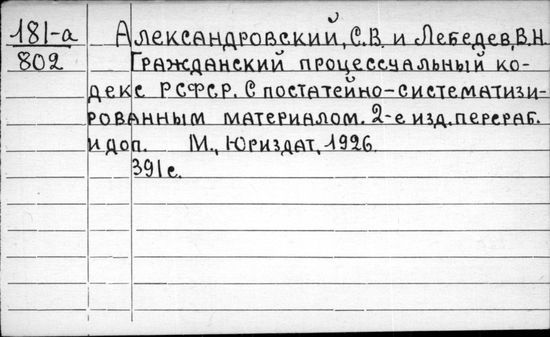 181-а Александровский, С.В. и Лебедев, В.Н.
802 Гражданский процессуальный ко-
декс РСФСР. С постатейно-систематизи-
рованным материалом. 2-е изд. перераб.
и доп. М., Юриздат, 1926.
391 с.